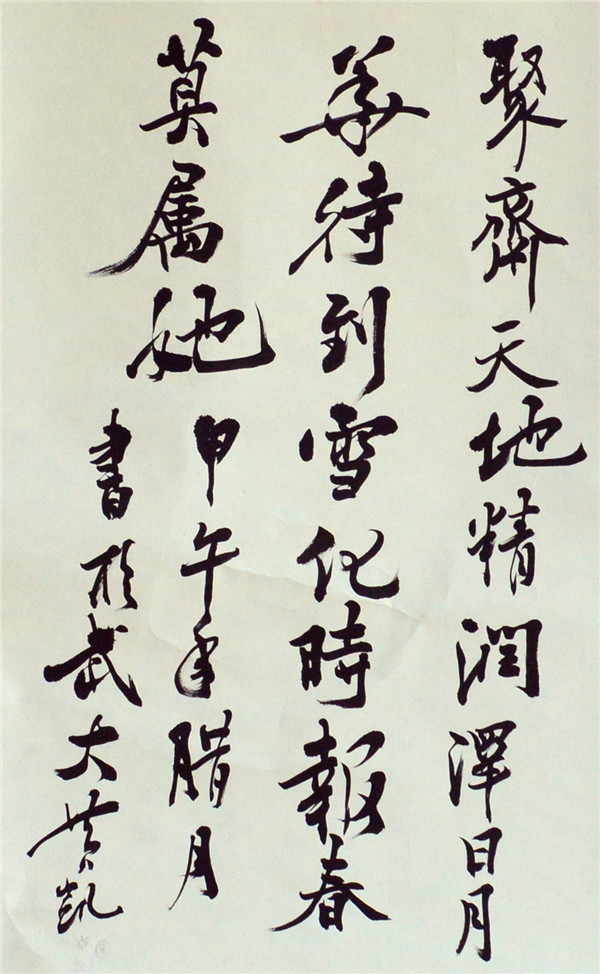 聚齊天地精潤澤日月
華待到雪化時報春
莫属她
甲午年腊月
書於武大黄凯